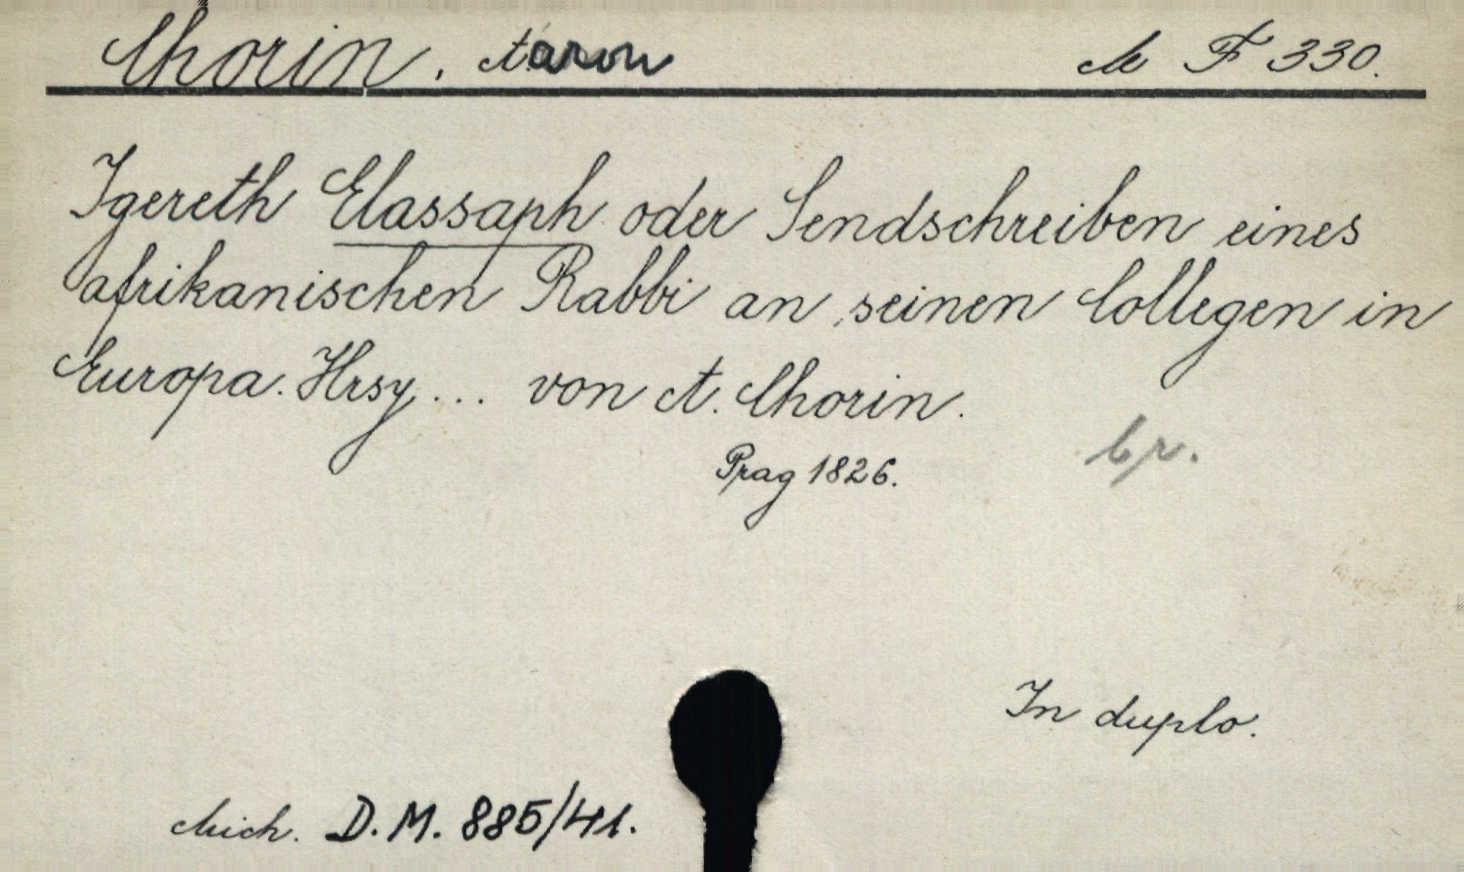 Chorin. Aaron M F 330.
Igereth Elassaph oder Sendschreiben eines
afrikanischen Rabbi an seinen Collegen in
Europa. Hrsg... von A. Chorin.
Prag 1826.
In duplo.
Mich. D. M. 885/41.